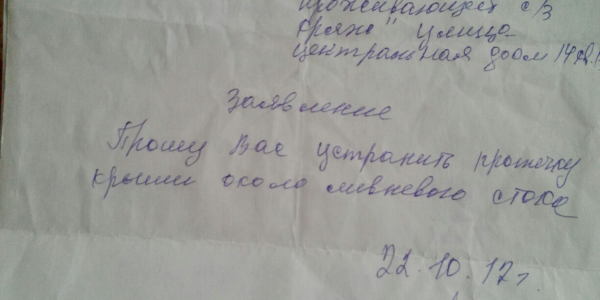 проживающей с/з
Пряжа" улица
центральная дом 14
Заявление
Прошу Вас устранить протечку
крыши около ливневого стока
22.10.17г.